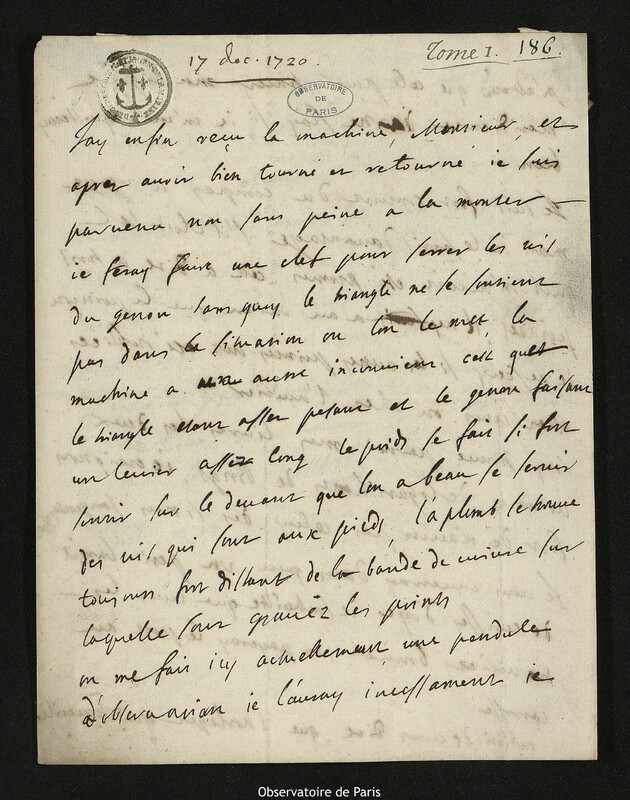 17 dec. 1720.
Tome 1. 186.
OBSERVATOIRE
DE
PARIS
Jay enfin reçu la machine, Monsieur, et
apres avoir bien tourné et retourné ie suis
parvenu non sans peine a la monter
ie feray faire une clef pour serrer les vis
du genou sans quoy le triangle ne se soutient
pas dans la situation ou lon le met, la
machine a aussi inconvenient cest que
le triangle etant assez pesant et le genou faisant
un levier assez long le poids se fait si fort
sentir sur le devant que lon a beau se servir
des vis qui sont aux pieds, l'aplomb se trouve
toujours fort distant de la bande de cuivre sur
laquelle sont gravéz les points
on me fait icy actuellement une pendule
d'observation ie l'auray incessament ie
Observatoire de Paris